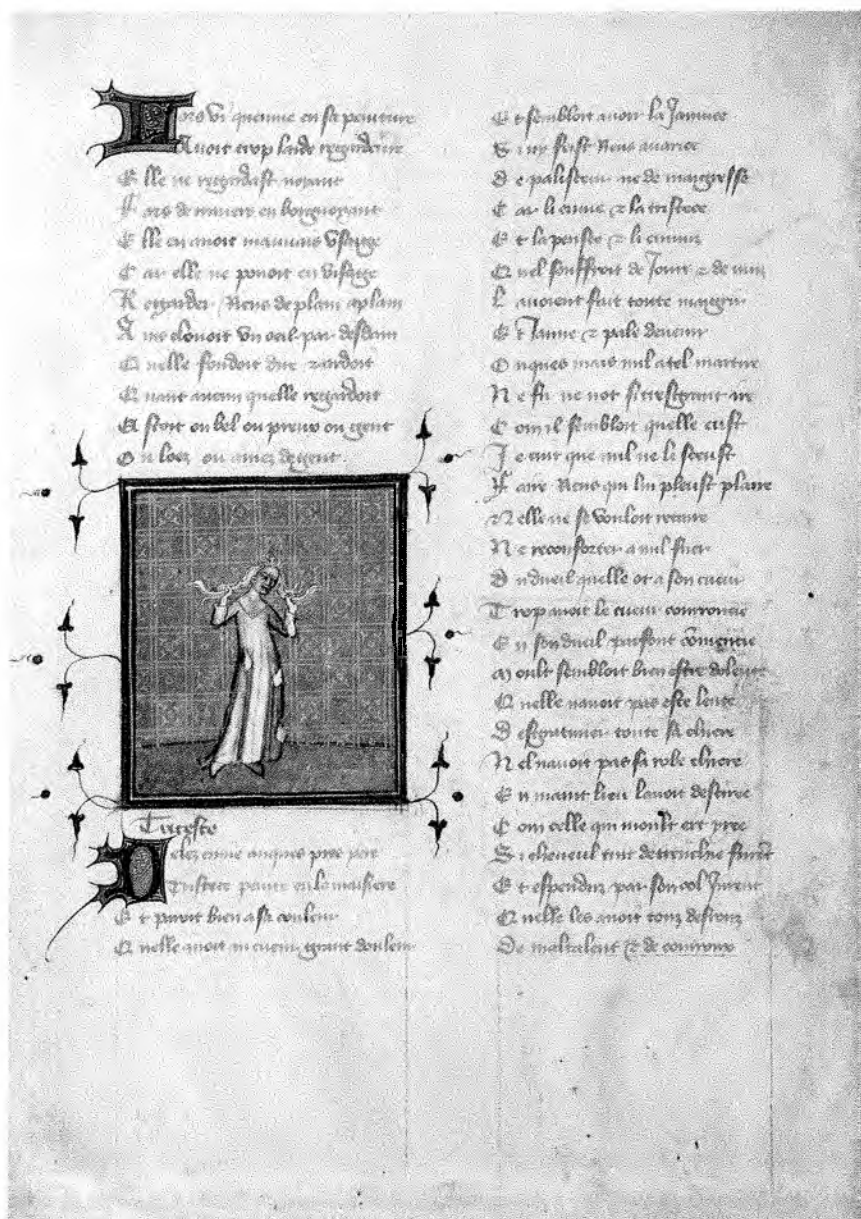 Lors vi quenvie en sa peinture
Avoit trop laide regardeure
E lle ne regardast noyant
F ors de travers en borgnoyant
E lle en avoit mauvais usaige
C ar elle ne povoit en visaige
R egarder Riens de plain aplain
A ins clouoit un oeil par desdain
Q uelle fondoit dire et ardoit
Q uant aucun quelle regardoit
E stoit ou bel ou preux ou gent
O u loez ou amez de gent.
Tristesce
Delez envie auques pres
Tristece painte en la maisiere
E t paroit bien a sa couleur
Q uelle avoit en cueur grant douleur
E t sembloit avoir la Jaunice
S i ny feist Riens avarice
D e palisseur ne de maigresse
C ar li et la tristece
E t la pensee et li ennuiz
Q uel souffroit de Jour et de nuiz
L avoient fait toute maigrir
E t Jaune et pale devenir
O nques mais nul a tel martire
N e fu ne not si tresgrant ire
C om il sembloit quelle eust
J e cuit que nul ne li sceust
F aire Riens qui lui pleust plaire
N elle ne se vouloit retraire
N e reconforter a nul fuer
D u dueil quelle ot a son cueur
T rop avoit le cueur courroucie
E t son dueil parfont
M oult sembloit bien estre dolente
Q uelle navoit pas este lente
D esgratiner toute sa chiere
N el navoit pas sa robe chiere
E n maint lieu lavoit desciree
C om celle qui moult ert yree
Si cheveul tuit destrecie furent
E t espenduz par son col Jurent
Q uelle les avoit touz desrouz
De maltalent et de courroux